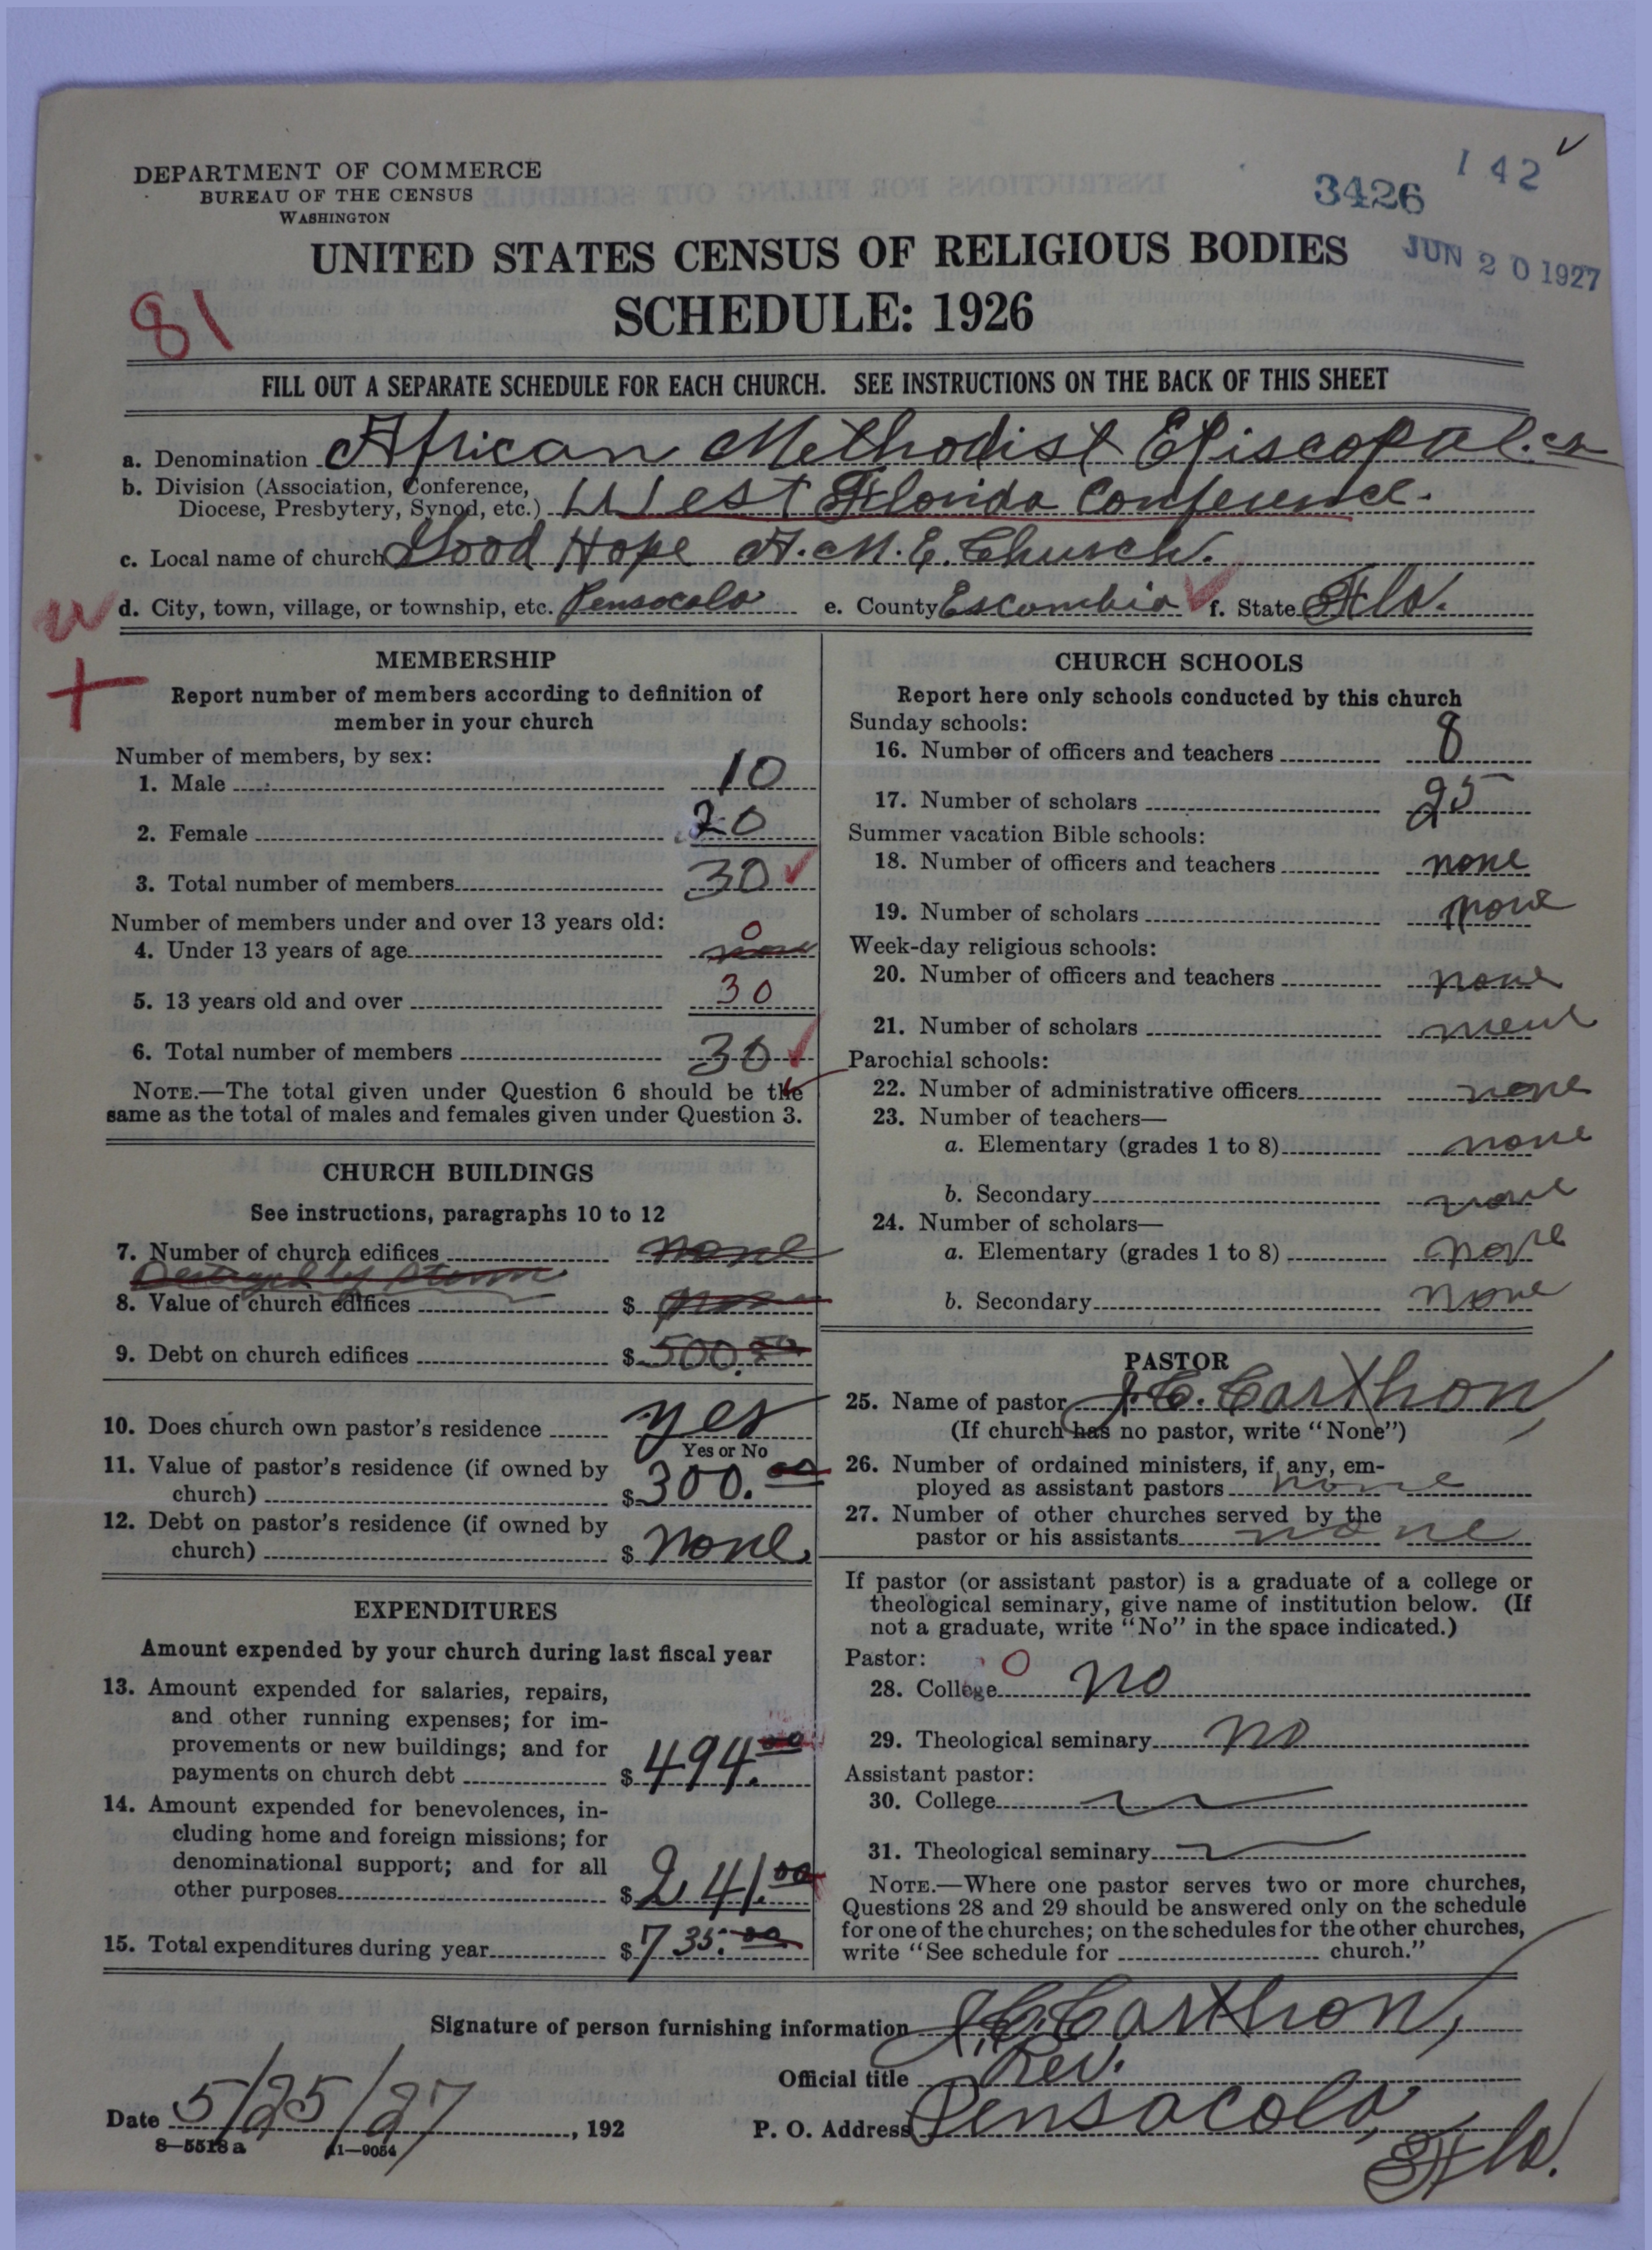 DEPARTMENT OF COMMERCE
BUREAU OF THE CENSUS
WASHINGTON
3426
142
JUN 20 1927
UNITED STATES CENSUS OF RELIGIOUS BODIES
SCHEDULE: 1926
81
FILL OUT A SEPARATE SCHEDULE FOR EACH CHURCH. SEE INSTRUCTIONS ON THE BACK OF THIS SHEET
a. Denomination African Methodist Episcopal. ch
b. Division (Association, Conference, Diocese, Presbytery, Synod, etc.) West Florida Conference.
c. Local name of church Good Hope A.M.E. Church.
d. City, town, village, or township, etc. Pensacola e. County Escambia f. State Fla.
MEMBERSHIP
Report number of members according to definition of
member in your church
Number of members, by sex:
1. Male 10
2. Female 20
3. Total number of members 30
Number of members under and over 13 years old:
4. Under 13 years of age none 0
5. 13 years old and over 30
6. Total number of members 30
NOTE.—The total given under Question 6 should be the
same as the total of males and females given under Question 3.
CHURCH BUILDINGS
See instructions, paragraphs 10 to 12
7. Number of church edifices none
Destroyed by storm
8. Value of church edifices $ none
9. Debt on church edifices $ 500.00
10. Does church own pastor's residence yes
Yes or No
11. Value of pastor's residence (if owned by
church) $ 300.00
12. Debt on pastor's residence (if owned by
church) $ none
EXPENDITURES
Amount expended by your church during last fiscal year
13. Amount expended for salaries, repairs,
and other running expenses; for im-
provements or new buildings; and for
payments on church debt $ 494.00
14. Amount expended for benevolences, in-
cluding home and foreign missions; for
denominational support; and for all
other purposes $ 241.00
15. Total expenditures during year $ 735.00
CHURCH SCHOOLS
Report here only schools conducted by this church
Sunday schools:
16. Number of officers and teachers 8
17. Number of scholars 25
Summer vacation Bible schools:
18. Number of officers and teachers none
19. Number of scholars none
Week-day religious schools:
20. Number of officers and teachers none
21. Number of scholars none
Parochial schools:
22. Number of administrative officers none
23. Number of teachers—
a. Elementary (grades 1 to 8) none
b. Secondary none
24. Number of scholars—
a. Elementary (grades 1 to 8) none
b. Secondary none
PASTOR
25. Name of pastor J. C. Carthon
(If church has no pastor, write "None")
26. Number of ordained ministers, if any, em-
ployed as assistant pastors none
27. Number of other churches served by the
pastor or his assistants none
If pastor (or assistant pastor) is a graduate of a college or
theological seminary, give name of institution below. (If
not a graduate, write "No" in the space indicated.)
Pastor: 0
28. College no
29. Theological seminary no
Assistant pastor:
30. College
31. Theological seminary
NOTE.—Where one pastor serves two or more churches,
Questions 28 and 29 should be answered only on the schedule
for one of the churches; on the schedules for the other churches,
write "See schedule for church."
Signature of person furnishing information J. C. Carthon,
Official title Rev.
Date 5/25/27, 192 P. O. Address Pensacola,
Fla.
8—5518 a 11—9054